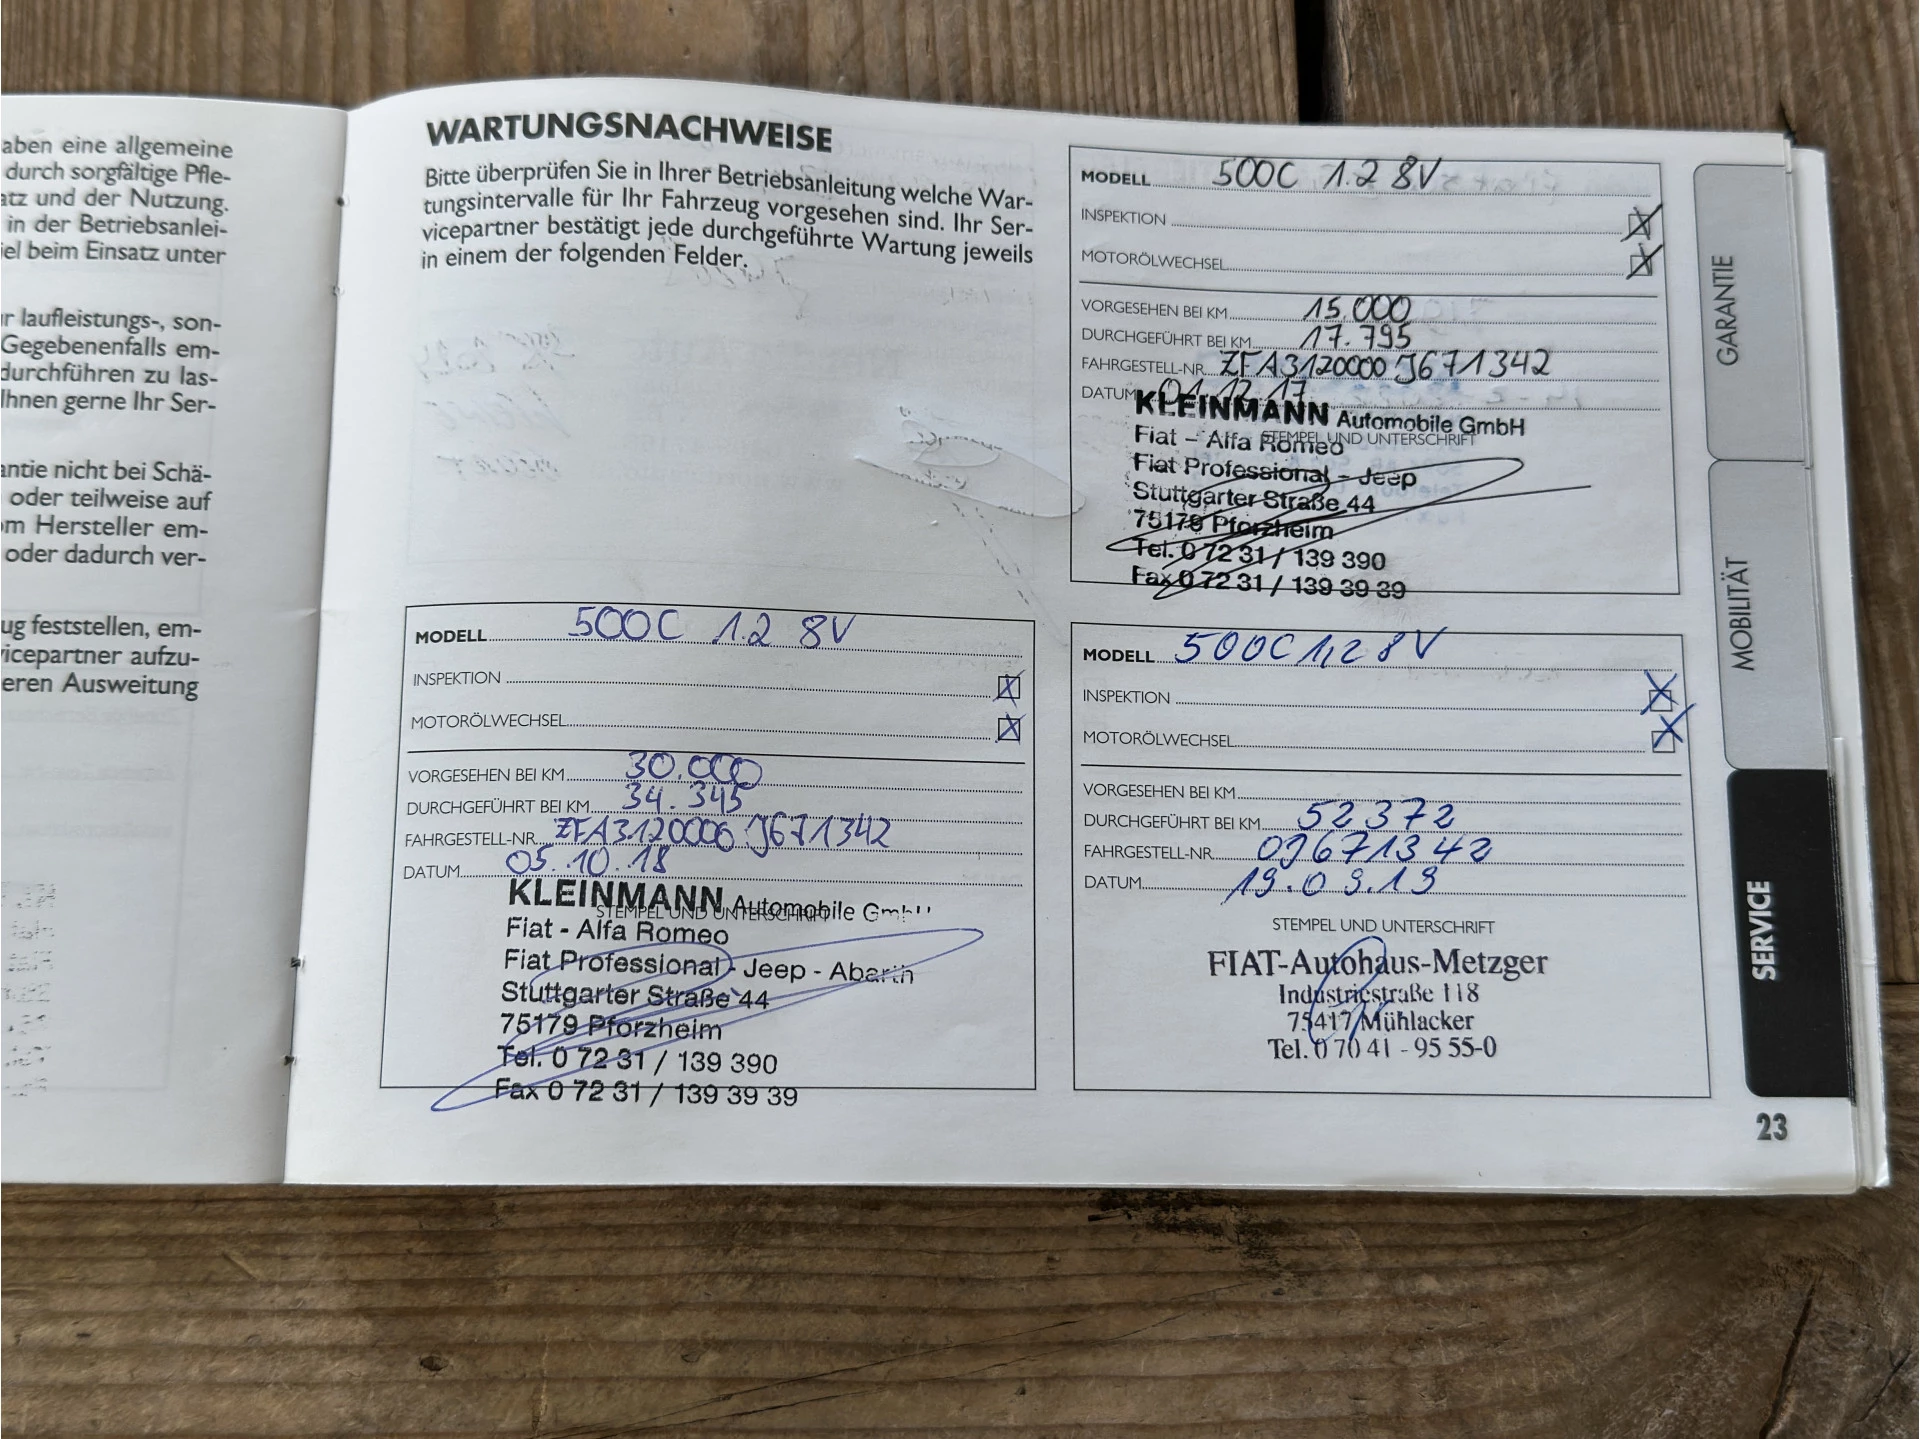 aben eine allgemeine
durch sorgfältige Pfle-
atz und der Nutzung.
in der Betriebsanlei-
iel beim Einsatz unter
r laufleistungs-, son-
Gegebenenfalls em-
durchführen zu las-
Ihnen gerne Ihr Ser-
antie nicht bei Schä-
oder teilweise auf
om Hersteller em-
oder dadurch ver-
ug feststellen, em-
vicepartner aufzu-
eren Ausweitung
WARTUNGSNACHWEISE
Bitte überprüfen Sie in Ihrer Betriebsanleitung welche War-
tungsintervalle für Ihr Fahrzeug vorgesehen sind. Ihr Ser-
vicepartner bestätigt jede durchgeführte Wartung jeweils
in einem der folgenden Felder.
MODELL 500C 1.2 8V
INSPEKTION X
MOTORÖLWECHSEL X
VORGESEHEN BEI KM 15.000
DURCHGEFÜHRT BEI KM 17.795
FAHRGESTELL-NR. ZFA3120000J671342
DATUM 01.12.17
KLEINMANN Automobile GmbH
STEMPEL UND UNTERSCHRIFT
Fiat - Alfa Romeo
Fiat Professional - Jeep
Stuttgarter Straße 44
75179 Pforzheim
Tel. 0 72 31 / 139 390
Fax 0 72 31 / 139 39 39
MODELL 500C 1.2 8V
INSPEKTION X
MOTORÖLWECHSEL X
VORGESEHEN BEI KM 30.000
DURCHGEFÜHRT BEI KM 34.345
FAHRGESTELL-NR. ZFA3120000J671342
DATUM 05.10.18
KLEINMANN Automobile GmbH
STEMPEL UND UNTERSCHRIFT
Fiat - Alfa Romeo
Fiat Professional - Jeep - Abarth
Stuttgarter Straße 44
75179 Pforzheim
Tel. 0 72 31 / 139 390
Fax 0 72 31 / 139 39 39
MODELL 500C 1,2 8V
INSPEKTION X
MOTORÖLWECHSEL X
VORGESEHEN BEI KM
DURCHGEFÜHRT BEI KM 52372
FAHRGESTELL-NR. 0J671342
DATUM 19.09.19
STEMPEL UND UNTERSCHRIFT
FIAT-Autohaus-Metzger
Industriestraße 118
75417 Mühlacker
Tel. 0 70 41 - 95 55-0
GARANTIE
MOBILITÄT
SERVICE
23